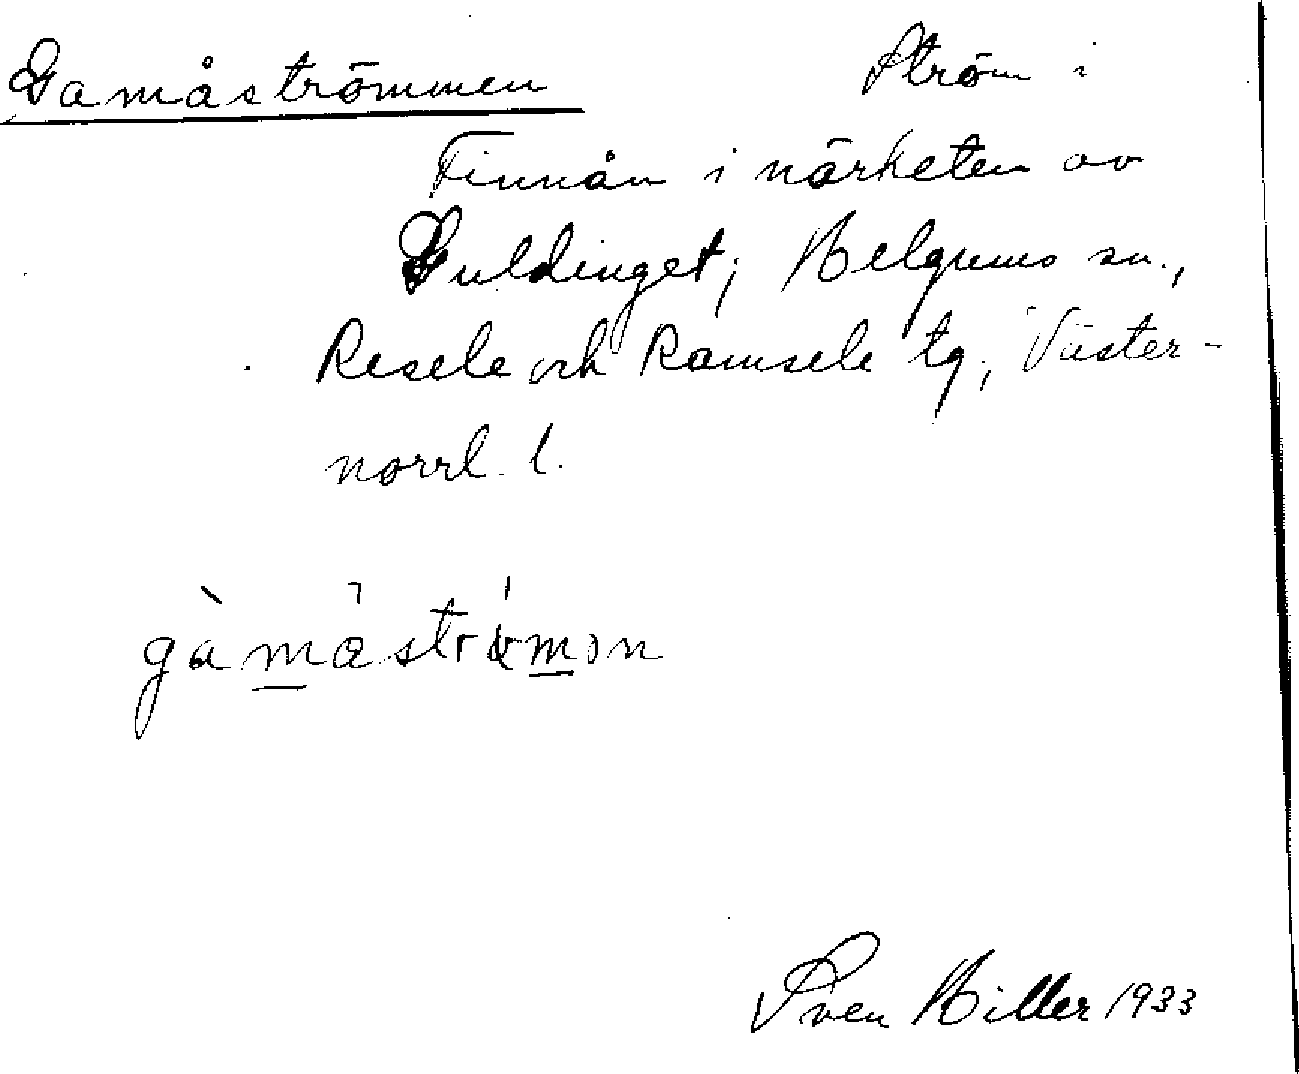 Gamåströmmen Ström i
Finnån i närheten av
Guldinget; Helgums sn.,
Resele och Ramsele tg, Väster-
norrl. l.
Sven Hiller 1933